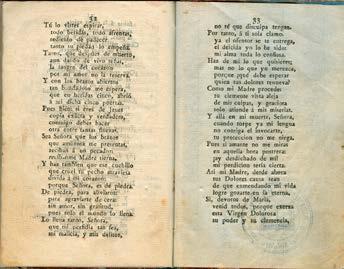 32
Tú lo vistes espirar,
todo heridas, todo afrentas,
pediendo de padecer
tanto su piedad lo empeña.
Tanto, que dejado de muerto,
aun dando de vivo señas,
la sangre del corazon
por mi amor no la reserva.
Y con los brazos abiertos
tan bondadoso me espera,
que en heridas cinco, abrió
á mi dicha cinco puertas.
Pues bien, si eres de Jesus
copia exacta y verdadera,
conmigo debes hacer
otra entre tantas finezas.
Sea Señora que los brazos
que amantes me presentas,
recibas á un pecador,
Madre tierna.
Y haz tambien que ese cuchillo
que cruel tu pecho atraviesa
divida á mi corazon;
porque Señora, es de piedra.
De piedra, para aliviaros;
para agraviarte de cera:
sin amor, sin gratitud,
pues solo el mundo lo llena.
Lo llena tanto, Señora,
que mi perfidia tan fea,
mi malicia, y mis delitos,
33
no sé que disculpa tengan.
Por tanto, á tí sola clamo:
ya el ofensor se te entrega,
el deicida yo lo he sido:
mi alma toda lo confiesa.
Haz de mí lo que quisieres;
mas no lo que yo merezca,
porque ¿qué debe esperar
quien tus dolores renueva?
Como mi Madre procede:
tu clemente vista aleja
de mis culpas, y graciosa
solo atiende á mis miserias.
Y allá en mi muerte, Señora,
cuando torpe ya mi lengua
no consiga el invocarte,
tu proteccion no me niega.
Pues si amante no me miras
en aquella hora postrera:
¡ay desdichado de mí!
mi perdicion sería cierta.
Así mi Madre, desde ahora
tus Dolores causa sean
de que enmendando mi vida
logre gozarte en la eterna.
Si, devotos de María,
venid todos, porque ostenta
esta Virgen Dolorosa
su poder y su clemencia,